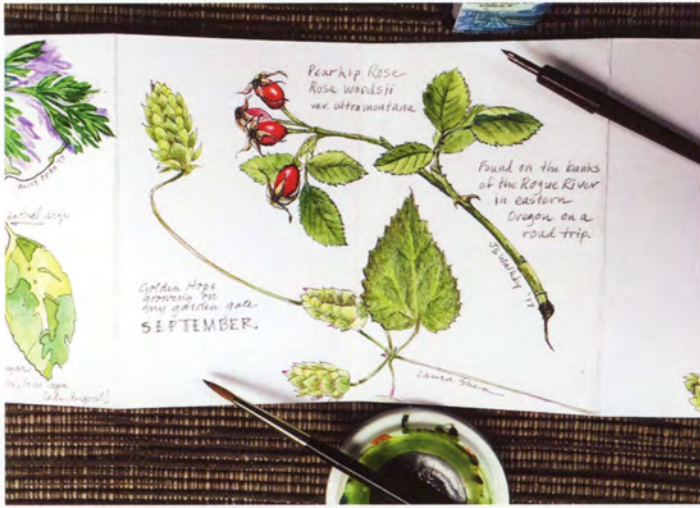 Pearhip Rose
Rosa Woodsii
var. ultramontana
Found on the banks
of the Rogue River
in eastern
Oregon on a
road trip.
'17
Golden Hops
growing on
my garden gate
SEPTEMBER.
Laura Shea